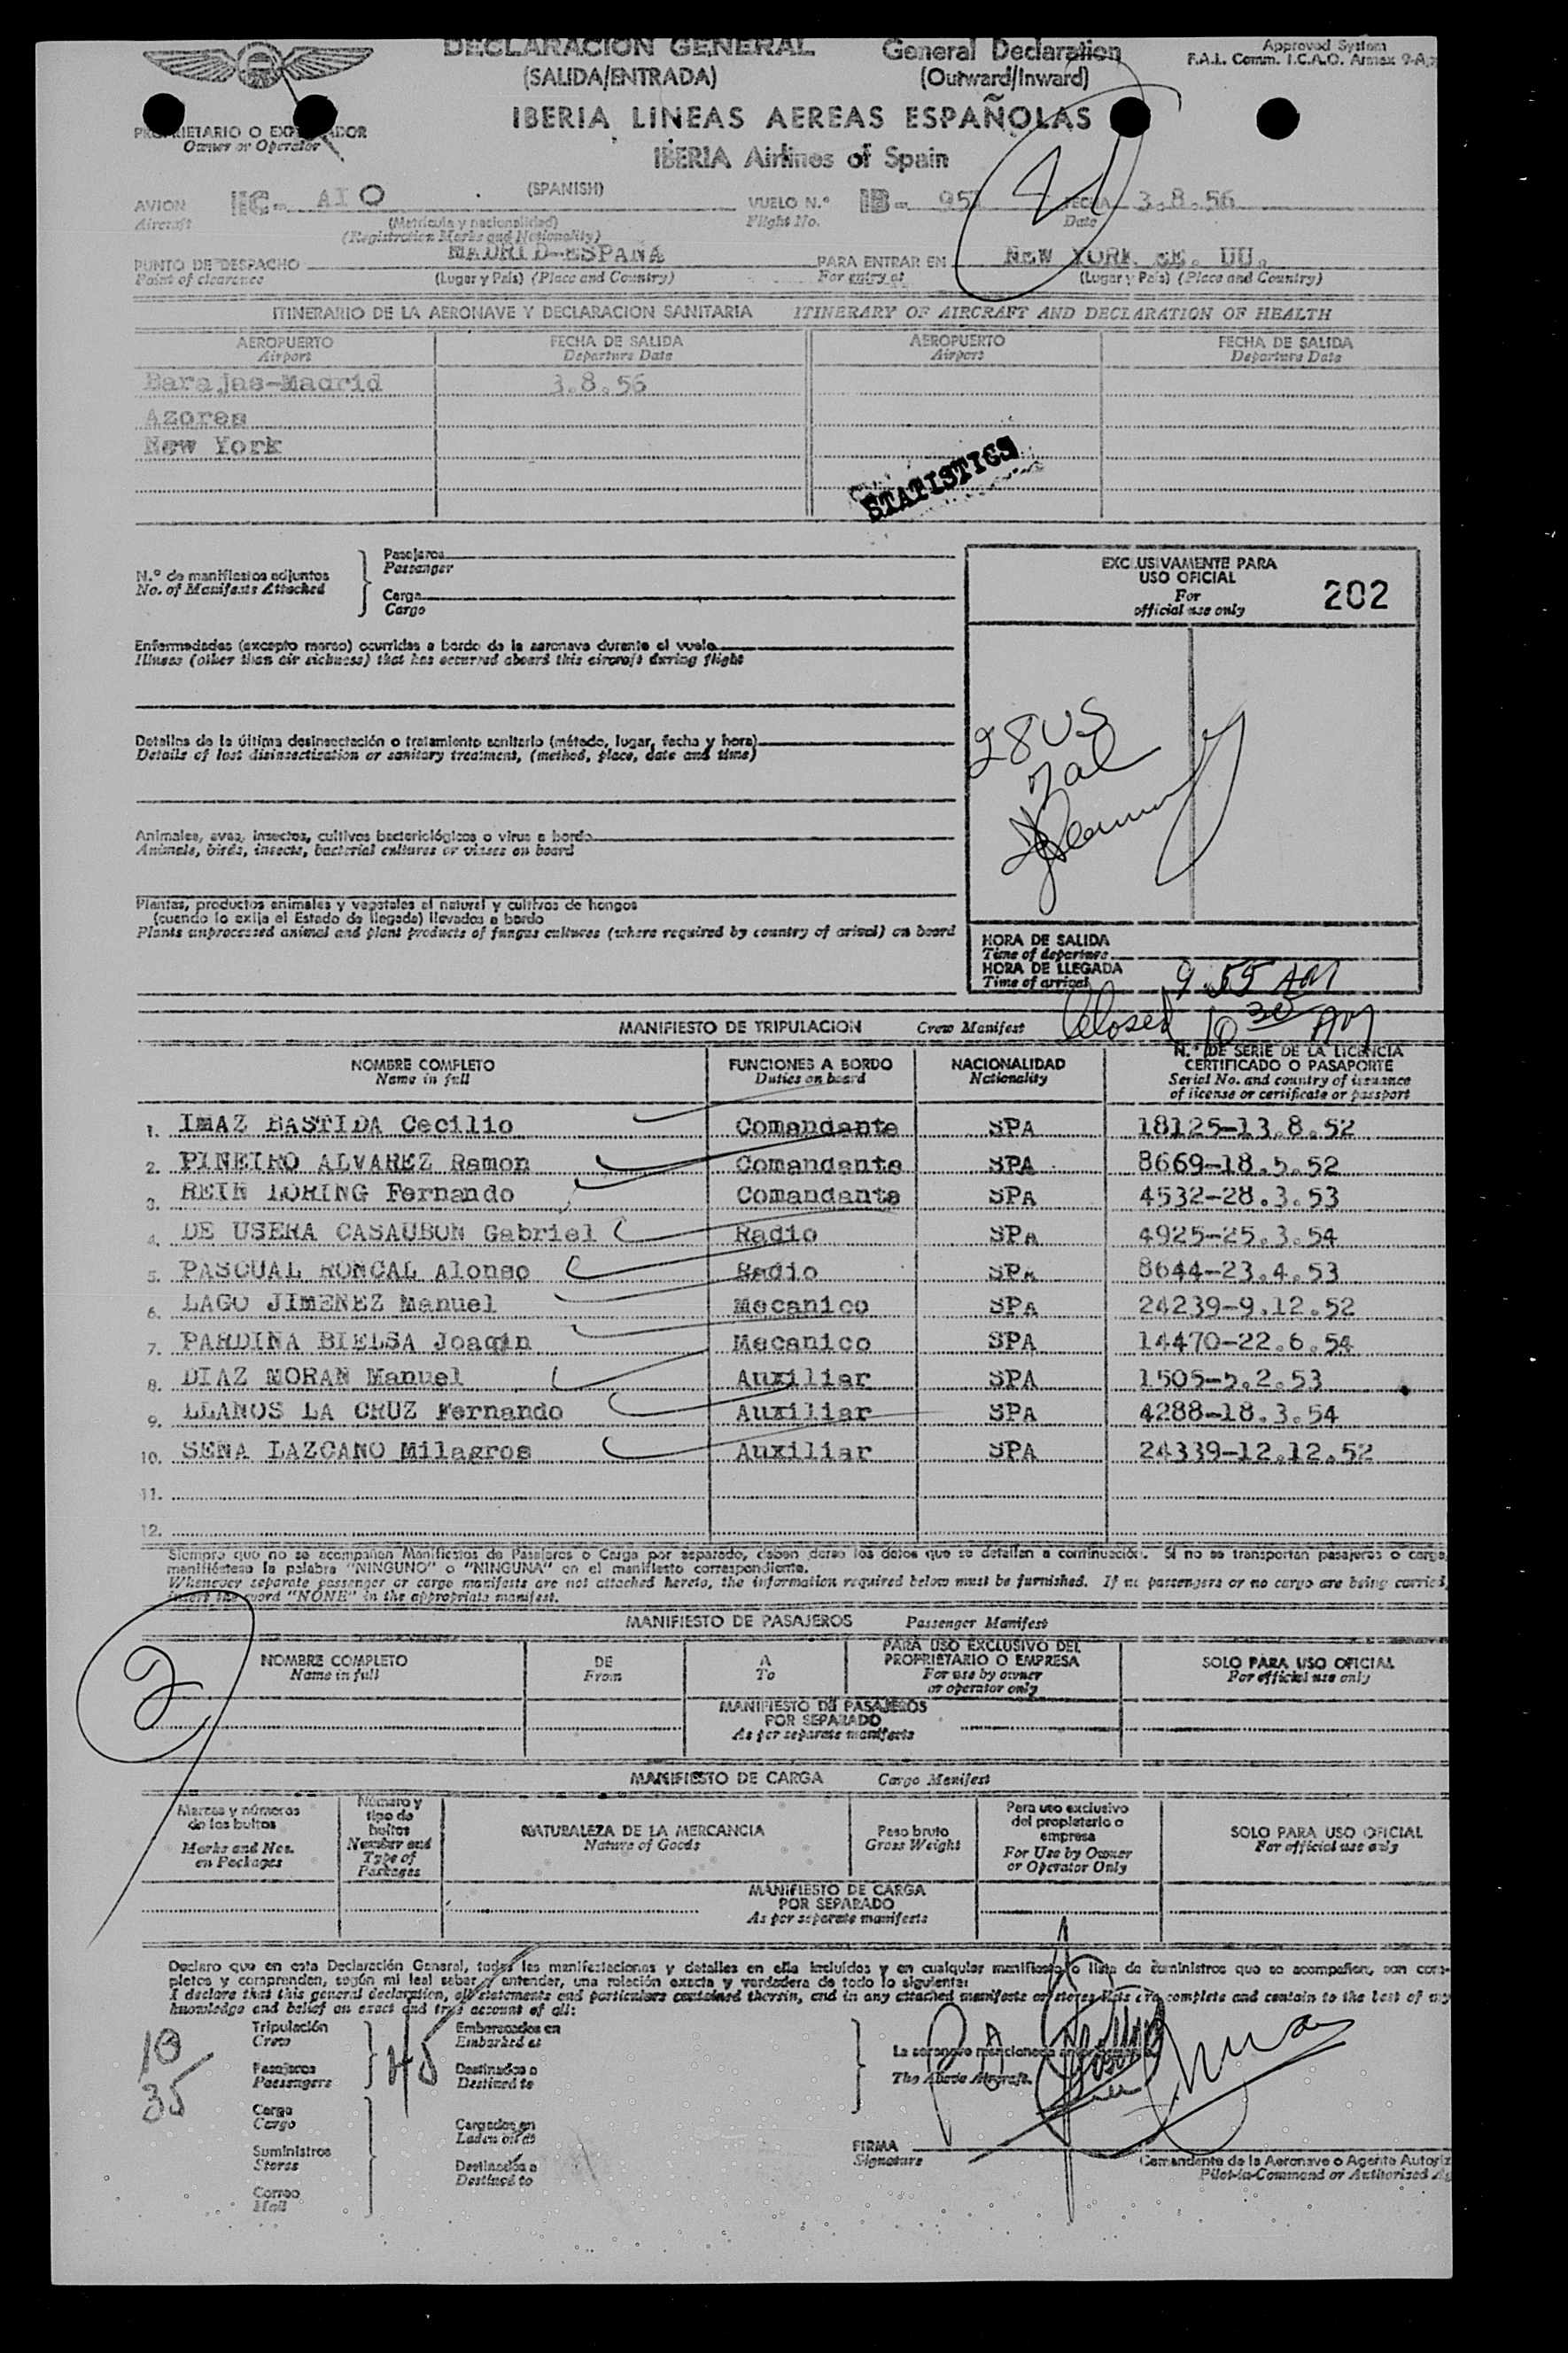 DECLARACION GENERAL General Declaration
(SALIDA/ENTRADA) (Outward/Inward)
Approved System
F.A.L. Comm. I.C.A.O. Annex 9-A
IBERIA LINEAS AEREAS ESPAÑOLAS
IBERIA Airlines of Spain
PROPRIETARIO O EXPLOTADOR
Owner or Operator
(SPANISH)
AVION EC- AIO VUELO N.º IB- 951 FECHA 3.8.56
Aircraft (Metrícula y nacionalidad) Flight No. Date
(Registration Marks and Nationality)
PUNTO DE DESPACHO MADRID-ESPAÑA PARA ENTRAR EN NEW YORK EE. UU.
Point of clearence (Lugar y País) (Place and Country) For entry at (Lugar y País) (Place and Country)
ITINERARIO DE LA AERONAVE Y DECLARACION SANITARIA ITINERARY OF AIRCRAFT AND DECLARATION OF HEALTH
AEROPUERTO FECHA DE SALIDA AEROPUERTO FECHA DE SALIDA
Airport Departure Date Airport Departure Date
Barajas-Madrid 3.8.56
Azores
New York
STATISTICS
N.º de manifiestos adjuntos
No. of Manifests Attached
Pasajeros
Passenger
Carga
Cargo
EXCLUSIVAMENTE PARA
USO OFICIAL
For
official use only
202
Enfermedades (excepto mareo) ocurridas a bordo de la aeronave durante el vuelo
Illness (other than air sickness) that has occurred aboard this aircraft during flight
Detalles de la última desinsectación o tratamiento sanitario (método, lugar, fecha y hora)
Details of last disinsectisation or sanitary treatment, (method, place, date and time)
28 US
Animales, aves, insectos, cultivos bacteriológicos o virus a bordo
Animals, birds, insects, bacterial cultures or viuses on board
Plantas, productos animales y vegetales al natural y cultivos de hongos
(cuando lo exija el Estado de llegada) llevados a bordo
Plants unprocessed animal and plant products of fungus cultures (where required by country of arival) on board
HORA DE SALIDA
Time of departure
HORA DE LLEGADA
Time of arrival 9.55 AM
Closed 10 30 AM
MANIFIESTO DE TRIPULACION Crew Manifest
NOMBRE COMPLETO FUNCIONES A BORDO NACIONALIDAD N.º DE SERIE DE LA LICENCIA
Name in full Duties on board Nationality CERTIFICADO O PASAPORTE
Serial No. and country of issuance
of license or certificate or passport
1. IMAZ BASTIDA Cecilio Comandante SPA 18125-13.8.52
2. PINEIRO ALVAREZ Ramon Comandante SPA 8669-18.5.52
3. REIN LORING Fernando Comandante SPA 4532-28.3.53
4. DE USERA CASAUBON Gabriel Radio SPA 4925-25.3.54
5. PASCUAL RONCAL Alonso Radio SPA 8644-23.4.53
6. LAGO JIMENEZ Manuel Mecanico SPA 24239-9.12.52
7. PARDINA BIELSA Joaqin Mecanico SPA 14470-22.6.54
8. DIAZ MORAN Manuel Auxiliar SPA 1505-5.2.53
9. LLANOS LA CRUZ Fernando Auxiliar SPA 4288-18.3.54
10. SENA LAZCANO Milagros Auxiliar SPA 24339-12.12.52
11.
12.
Siempre que no se acompañen Manifiestos de Pasajeros o Carga por separado, deben darse los datos que se detallan a continuación. Si no se transportan pasajeros o carga,
manifiéstese la palabra "NINGUNO" o "NINGUNA" en el manifiesto correspondiente.
Whenever separate passenger or cargo manifests are not attached hereto, the information required below must be furnished. If no passengers or no cargo are being carried,
insert the word "NONE" in the appropriate manifest.
MANIFIESTO DE PASAJEROS Passenger Manifest
NOMBRE COMPLETO DE A PARA USO EXCLUSIVO DEL SOLO PARA USO OFICIAL
Name in full From To PROPRIETARIO O EMPRESA For official use only
For use by owner
or operator only
2
MANIFIESTO DE PASAJEROS
POR SEPARADO
As per separate manifests
MANIFIESTO DE CARGA Cargo Manifest
Marcas y números
de los bultos
Marks and Nos.
on Packages
Número y
tipo de
bultos
Number and
Type of
Packages
NATURALEZA DE LA MERCANCIA
Nature of Goods
Peso bruto
Gross Weight
Para uso exclusivo
del propietario o
empresa
For Use by Owner
or Operator Only
SOLO PARA USO OFICIAL
For official use only
MANIFIESTO DE CARGA
POR SEPARADO
As per separate manifests
Declaro que en esta Declaración General, todas las manifestaciones y detalles en ella incluidos y en cualquier manifiesto o lista de suministros que se acompañen, son com-
pletos y comprenden, según mi leal saber y entender, una relación exacta y verdadera de todo lo siguiente:
I declare that this general declaration, all statements and particulars contained therein, and in any attached manifests or stores lists are complete and contain to the best of my
knowledge and belief an exact and true account of all:
10
35
Tripulación
Crew
Pasajeros
Passengers
45
Embarcados en
Embarked at
Destinados a
Destined to
La aeronave mencionada
The Above Aircraft.
P. A.
Carga
Cargo
Suministros
Stores
Correo
Mail
Cargados en
Laden on at
Destinados a
Destined to
FIRMA
Signature
Comandante de la Aeronave o Agente Autoriz
Pilot-in-Command or Authorized Ag